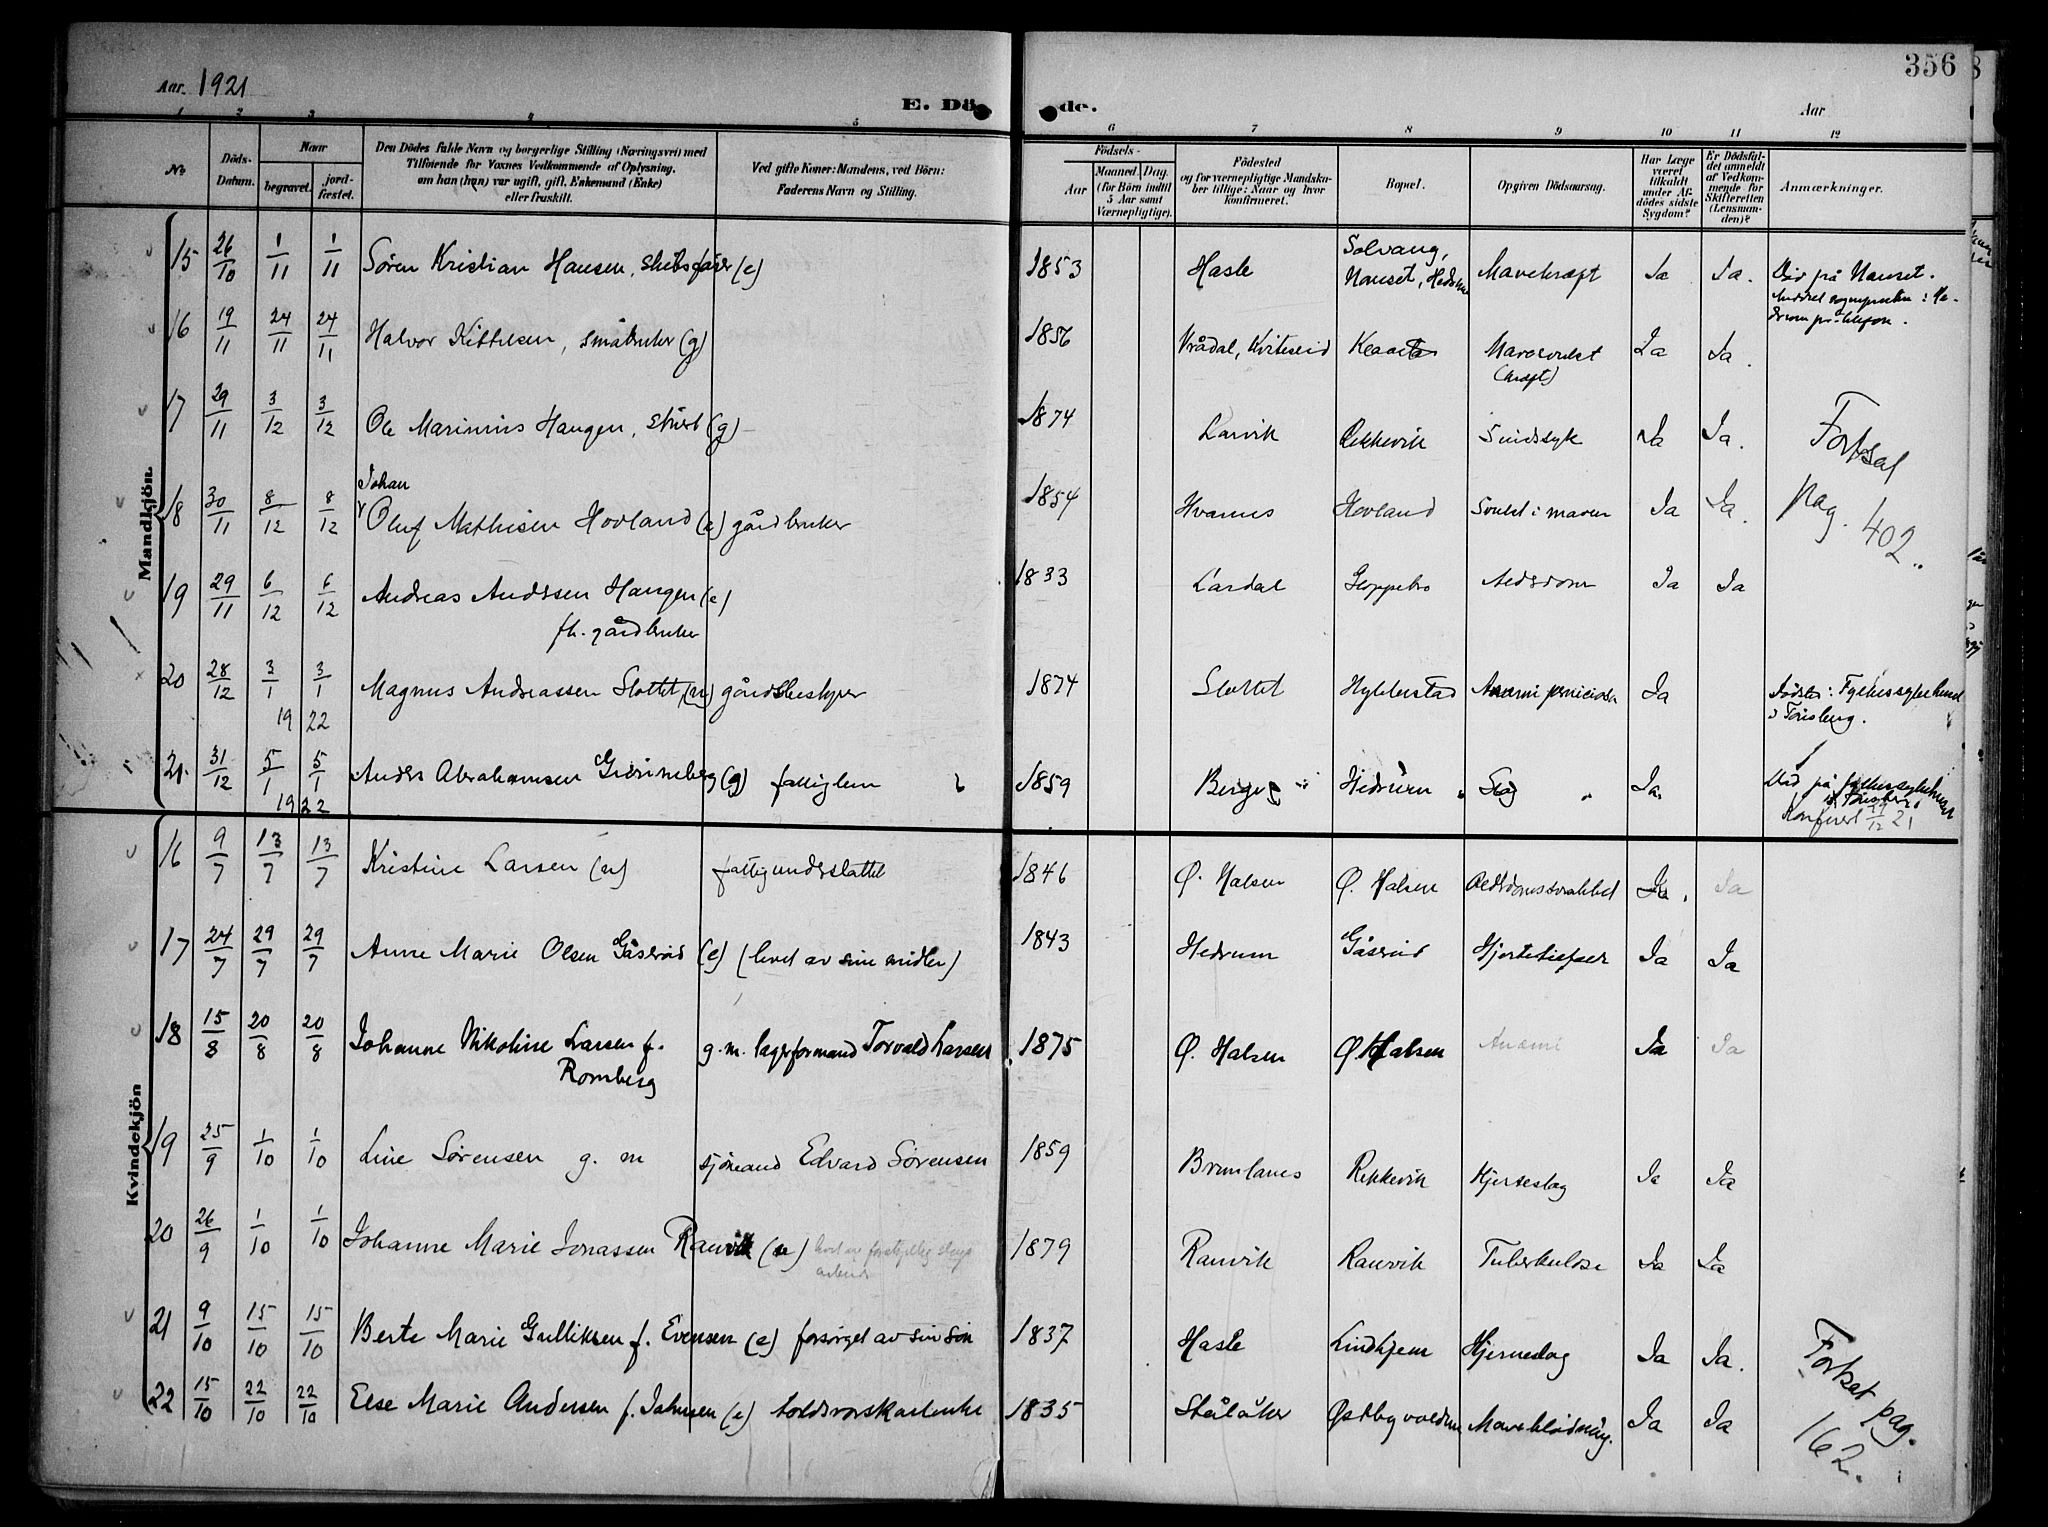 356
Aar. 1921
E. Dö
de.
Aar
1 2 3 4 5 6 7 8 9 10 11 12
No
Döds-
Datum.
Naar
begravet.
jord-
fæstet.
Den Dödes fulde Navn og borgerlige Stilling (Næringsvei) med
Tilföiende for Voxnes Vedkommende af Oplysning,
om han (hun) var ugift, gift, Enkemand (Enke)
eller fraskilt.
Ved gifte Koner: Mandens, ved Börn:
Faderens Navn og Stilling.
Födsels-
Aar
Maaned. Dag.
(for Börn indtil
5 Aar samt
Værnepligtige).
Födested
og for værnepligtige Mandska-
ber tillige: Naar og hvor
konfirmeret.
Bopæl.
Opgiven Dödsaarsag.
Har Læge
været
tilkaldt
under Af-
dödes sidste
Sygdom?
Er Dödsfal-
det anmeldt
af Vedkom-
mende for
Skifteretten
(Lensman-
den)?
Anmærkninger.
Mandkjön
15 26/10 1/11 1/11 Søren Kristian Hansen, skibsfører (e) 1853 Hasle Solvang, Nanset, Hedrum Mavekræft Ja Ja. Død på Nanset.
16 19/11 24/11 24/11 Halvor Kittelsen, småbruker (g) 1856 Vrådal, Kviteseid Mavesvulst (kræft) Ja Ja.
17 29/11 3/12 3/12 Ole Marinius Haugen, (g) 1874 Larvik Rekkevik Sindssyk Ja Ja.
Fortsat
pag. 402.
18 30/11 8/12 8/12 Johan
Oluf Mathisen Hovland (e) gårdbruker 1854 Hvarnes Hovland Svulst i maven Ja Ja.
19 29/11 6/12 6/12 Andreas Andersen Haugen (e)
fh. gårdbruker 1833 Lardal Gloppebo Aldersdom Ja Ja
20 28/12 3/1 3/1 19 22 Magnus Andreassen Slottet, (u) gårdsbestyrer 1874 Slottet Hybbestad Anæmi perniciosa Ja Dødsted: Fylkessykehuset
i Tønsberg.
21. 31/12 5/1 5/1 19 22 Anders Abrahamsen (g) fattiglem 1859 Berge Hedrum Slag Ja. Død på fylkessykehuset
i Tønsberg
Konferert 29/12 21
Kvindekjön
16 9/7 13/7 13/7 Kristine Larsen (u) fattigunderstøttet 1846 Ø. Halsen Ø. Halsen Alderdomssvakhet Ja. Ja
17 24/7 29/7 29/7 Anne Marie Olsen Gåserød (e) (levet av sine midler) 1843 Hedrum Gåserød Hjertelidelse Ja Ja
18 15/8 20/8 20/8 Johanne Nikoline Larsen f.
Romberg g. m. lagerformand Torvald Larsen 1875 Ø. Halsen Ø. Halsen Anæmi Ja Ja
19 25/9 1/10 1/10 Line Sørensen g. m sjømand Edvard Sørensen 1859 Brunlanes Rekkevik Hjerteslag Ja Ja
20 26/9 1/10 1/10 Johanne Marie Jonassen Rauvik (u) levet av forskjellig slags
arbeide 1879 Rauvik Rauvik Tuberkulose Ja Ja
21 9/10 15/10 15/10 Berte Marie Gulliksen f. Evensen (e) forsørget av sin søn 1837 Hasle Lindhjem Hjerneslag Ja Ja.
22 15/10 22/10 22/10 Else Marie Andersen f. Johnsen (e) toldvorskarlenke 1835 Ståläker Østbyvoldene Maveblødning. Ja Ja
Fortsat pag.
162.